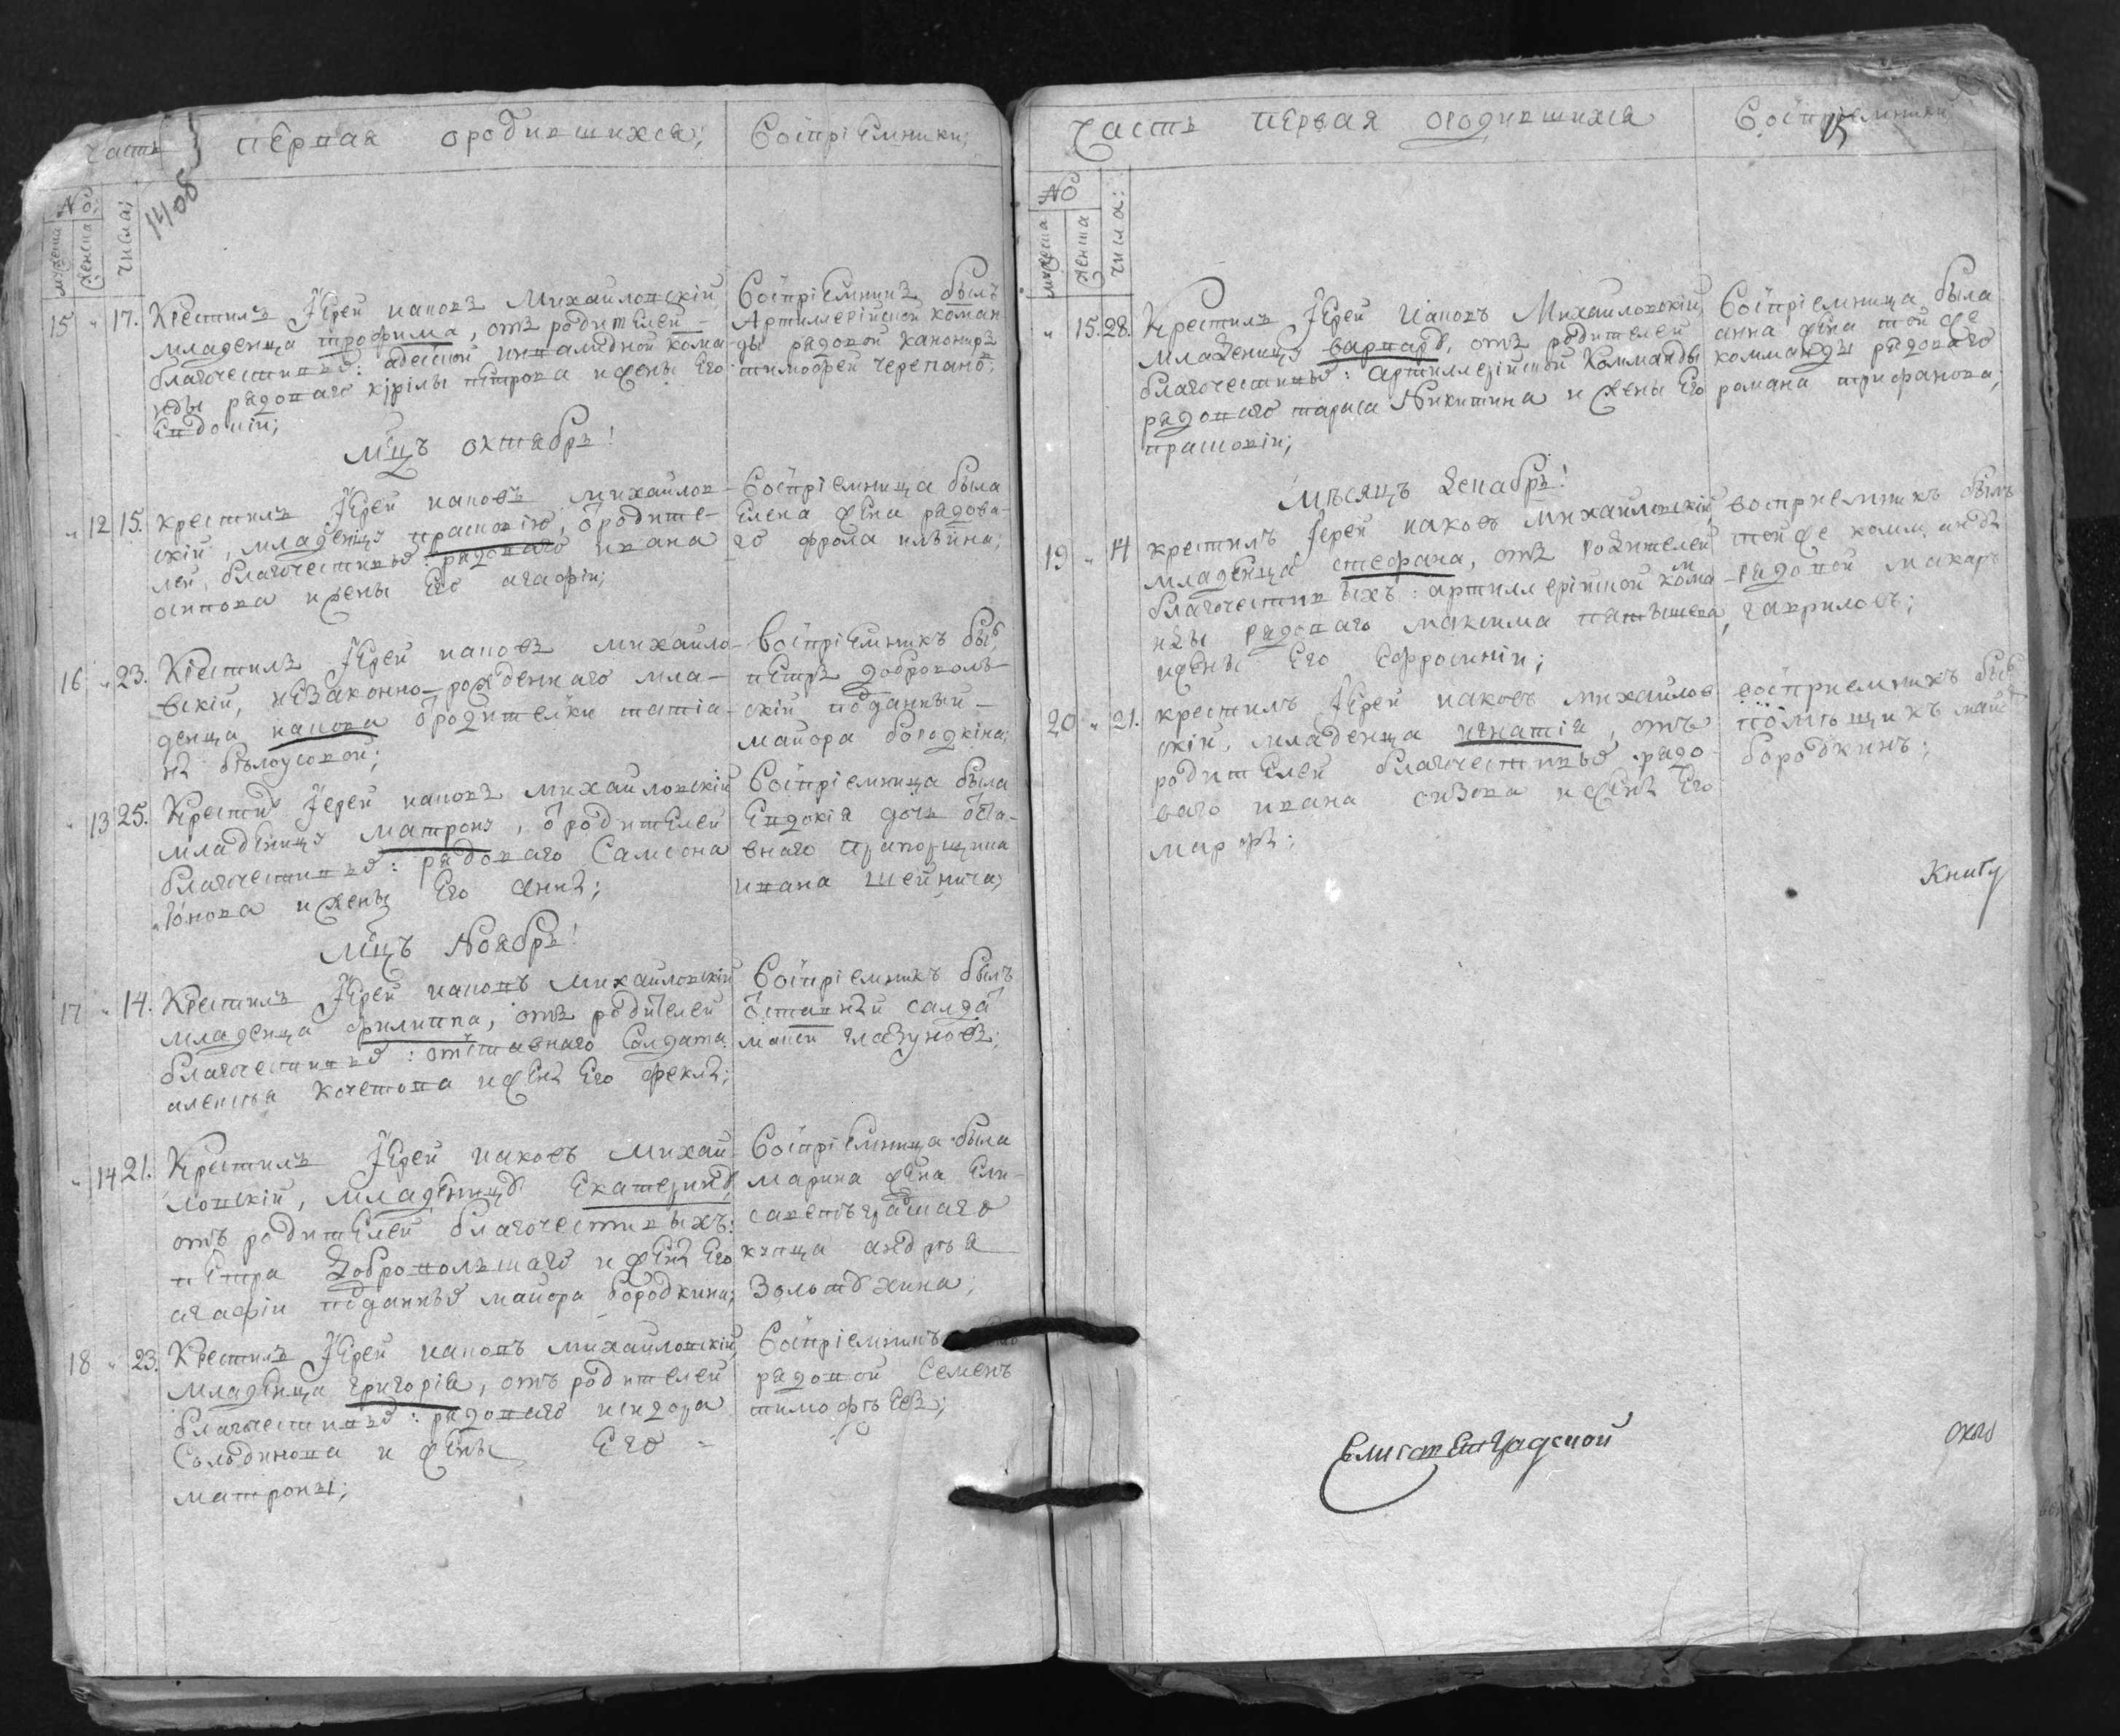 Часть первая ородившихся; Воспрiемники;
14об
№
мужеска
женска
числа;
15 " 17. Крестилъ Іерей Iаковъ Михайловскiй
младенца трофима, отъ родителей
благочестивыхъ: адесской инвалидной кома-
нды рядоваго кирилы петрова и жены Его
Евдокiи;
Воспрiемникъ былъ
Артиллерiйской коман
ды рядовой канониръ
тимофей черепановъ;
Мцъ октябрь!
" 12 15. крестилъ Іерей иаковъ михайлов-
скiй, младеницу прасковiю, ородите-
лей благочестивыхъ: рядоваго ивана
осипова и жены Его агафiи;
Воспрiемница была
Елена жена рядова-
го фрола ильина;
16 " 23. Крестилъ Іерей иаковъ михайло-
вскiй, незаконно-рожденнаго мла-
денца иакова ородителки татiа-
нъ бѣлоусовой;
воспрiемникъ былъ
петръ доброволь-
скiй подданный
маиора бородкина;
" 13 25. Крестилъ Іерей иаковъ михайловскiй
младеницу матрону, ородителей
благочестивыхъ: рядоваго Самсона
Ионова и жены Его аннъ;
Воспрiемница была
Евдокiя дочь оста-
внаго прапорщика
ивана
Мцъ Ноябрь!
17 " 14. Крестилъ Іерей иаковъ михайловскiй
младенца филиппа, отъ родителей
благочестивыхъ: отставнаго Салдата
алексѣя кочетова и женъ Его феклъ;
Воспрiемникъ былъ
оставнъй салдатъ
глазуновъ;
" 14 21. Крестилъ Іерей иаковъ михай
ловскiй, младеницу Екатерину,
отъ родителей благочестивыхъ:
петра Добровольскаго и женъ Его
агафiи подданныхъ маиора бородкина;
Воспрiемница была
марина жена Ели-
саветъградскаго
купца андрѣя
Золотухина;
18 " 23. Крестилъ Іерей иаковъ михайловскiй
младенца григорiя, отъ родителей
благочестивыхъ: рядоваго исидора
и жены Его -
матроны;
Воспрiемникъ
рядовой Семенъ
тимофѣевъ;
Часть первая ородившихся Воспрiемники
№
мужеска
женска
числа:
" 15. 28. Крестилъ Іерей Iаковъ Михайловскiй
младеницу варвару, отъ родителей
благочестивыхъ: артиллерiйской Комманды
рядоваго тараса Никитина и жены Его
прасковiи;
Воспрiемница была
анна жена той же
комманды рядоваго
романа трифанова;
Мѣсяцъ Декабрь!
19 " 14 крестилъ Іерей иаковъ михайловскiй
младенца стефана, отъ родителей
благочестивыхъ: артиллерiйской комма
нды рядоваго максима
и жены Его Ефросинiи;
восприемникъ былъ
той же комманды
рядовой макаръ
гавриловъ;
20 " 21. крестилъ Іерей иаковъ михайлов
скiй, младенца игнатiя, отъ
родителей благочестивыхъ: рядо-
ваго ивана сизова и женъ Его
марфъ;
воспрiемникъ былъ
помѣщикъ маиоръ
бородкинъ;
Книгу
Елисаветградской